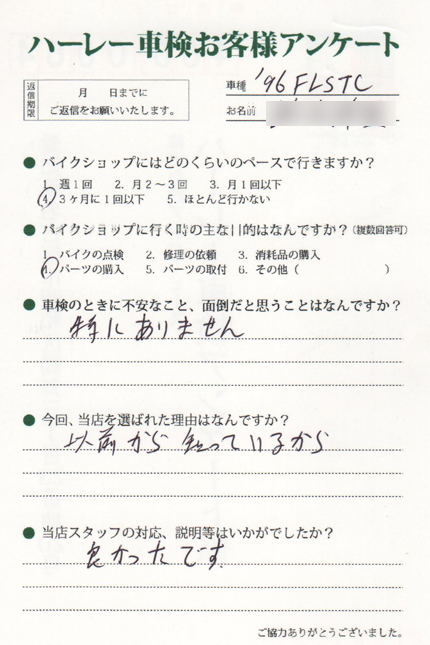 ハーレー車検お客様アンケート
返信期限
月　　日までに
ご返信をお願いいたします。
車種 '96 FLSTC
お名前
● バイクショップにはどのくらいのペースで行きますか？
1. 週1回　2. 月2〜3回　3. 月1回以下
4. 3ヶ月に1回以下　5. ほとんど行かない
● バイクショップに行く時の主な目的はなんですか？（複数回答可）
1. バイクの点検　2. 修理の依頼　3. 消耗品の購入
4. パーツの購入　5. パーツの取付　6. その他（　　　　　　）
● 車検のときに不安なこと、面倒だと思うことはなんですか？
特にありません
● 今回、当店を選ばれた理由はなんですか？
以前から知っているから
● 当店スタッフの対応、説明等はいかがでしたか？
良かったです
ご協力ありがとうございました。